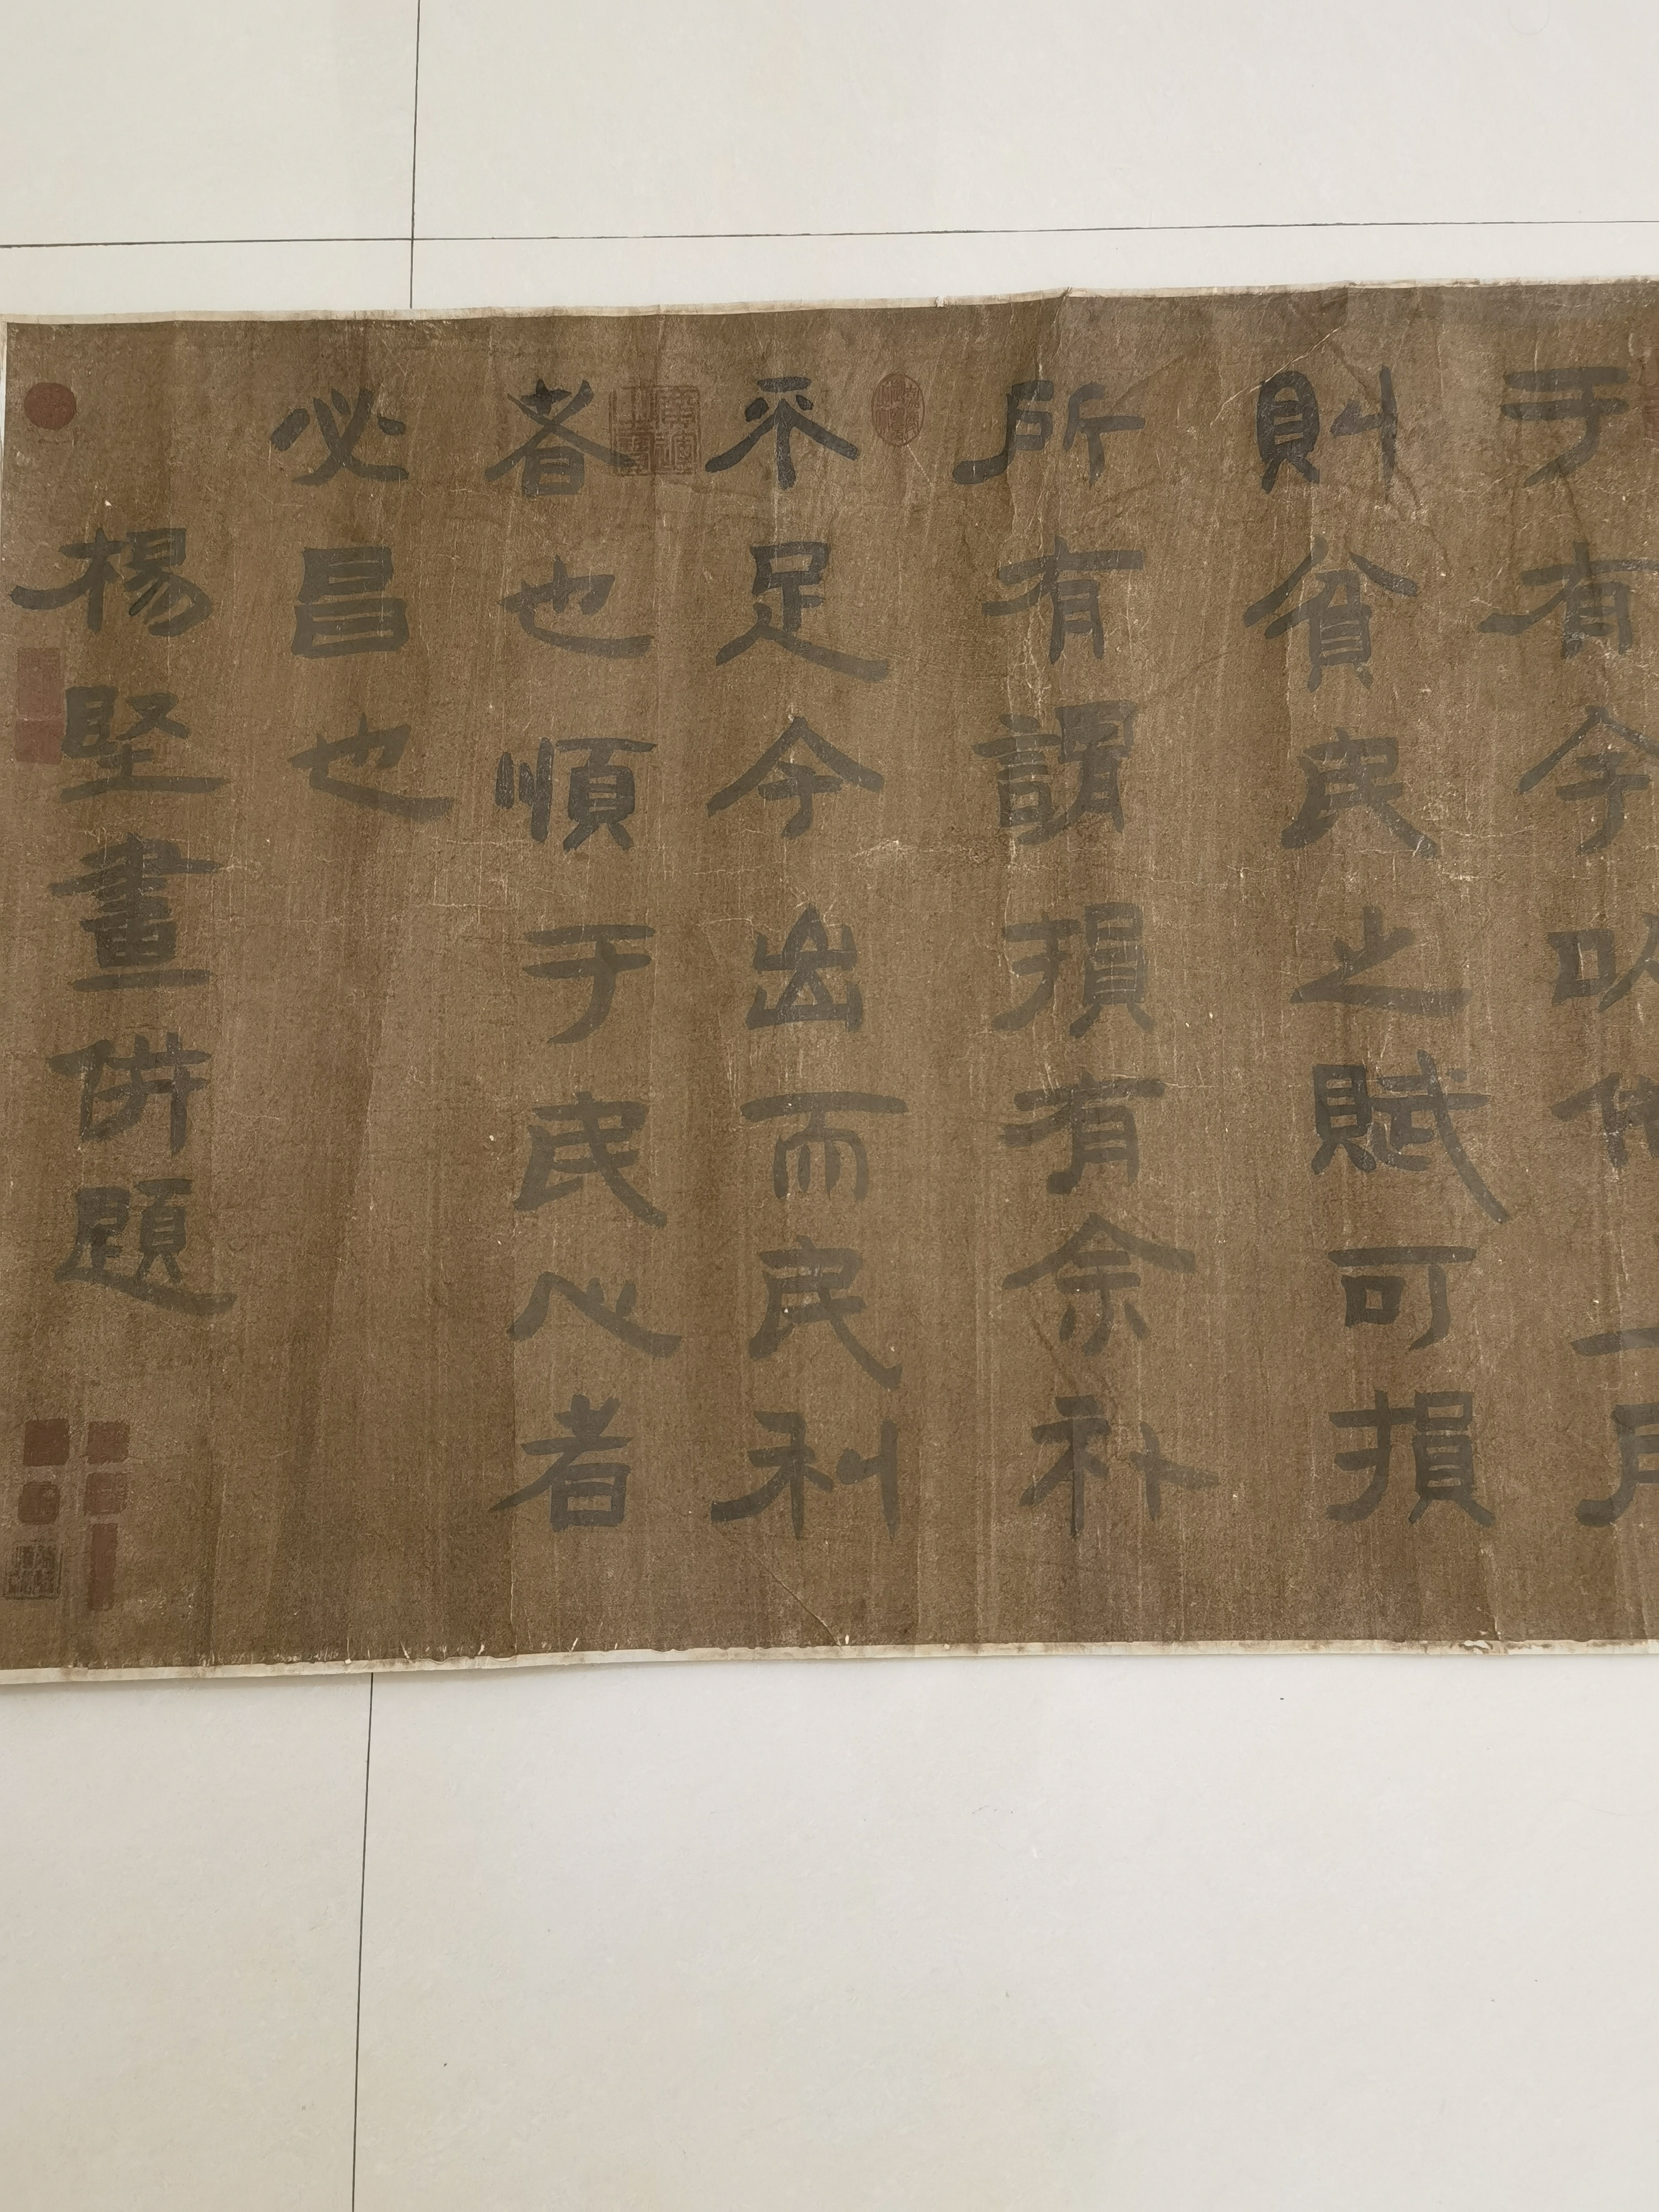 于有今以
則貧民之賦可損
所有謂損有余補
不足今出而民利
者也順于民心者
必昌也
楊堅畫併題